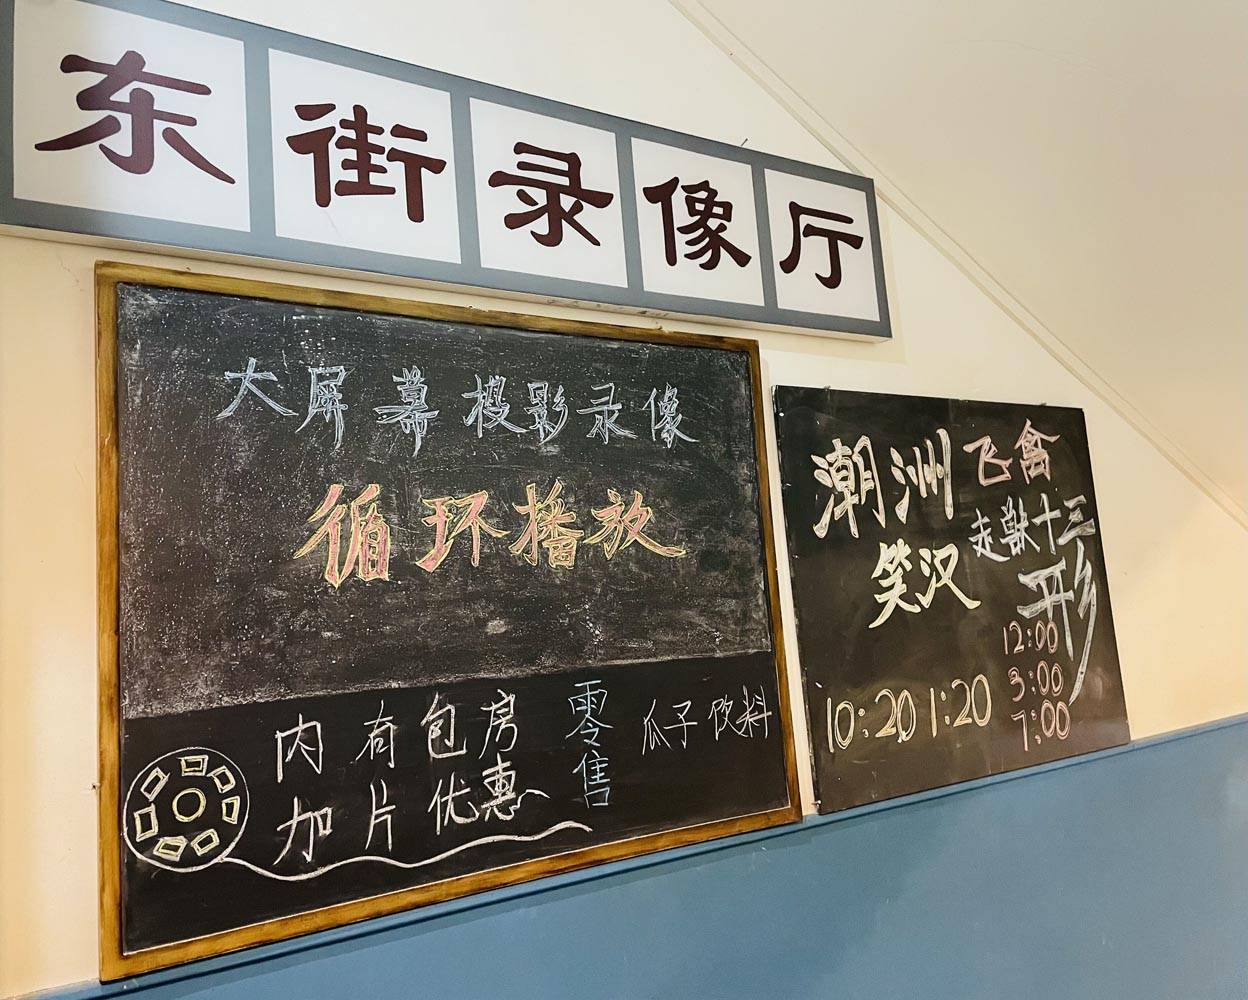 东街录像厅
大屏幕投影录像
循环播放
内有包房
加片优惠
零售
瓜子 饮料
潮洲
笑汉
10:20 1:20
飞禽
走兽十三
形
12:00
3:00
7:00